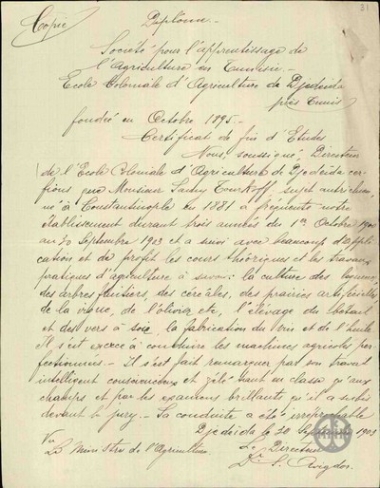 Copie
Diplome
31
Societé pour l'apprentissage de
l'Agriculture en Tunisie
Ecole Coloniale d'Agriculture de Djedeida
près Tunis
fondée en Octobre 1895.
Certificat de fin d'Etudes
Nous, soussigné, Directeur
de l'Ecole Coloniale d'Agriculture de Djedeida cer-
fions que Monsieur sujet autrichien
né à Constantinople en 1881 a fréquenté notre
établissement durant trois années du 1er Octobre 1900
au 30 Septembre 1903 et a suivi avec beaucoup d'appli-
cation et de profit les cours théoriques et les travaux
pratiques d'agriculture à savoir: la culture des légumes
des arbres fruitiers, des céréales, des prairies artificielles
de la vigne, de l'olivier etc, l'élevage du bétail
et des vers à soie, la fabrication du Vin et de l'huile
Il s'est exercé à conduire les machines agricoles per-
fectionnées. Il s'est fait remarquer par son travail
intelligent consciencieux et zélé tant en classe qu'aux
champs et par les examens brillants qu'il a subis
devant le jury. Sa conduite a été irréprochable
Djedeida le 30 Septembre 1903
Vu
Le Directeur
Le Ministre de l'Agriculture
Dr S. Avigdor